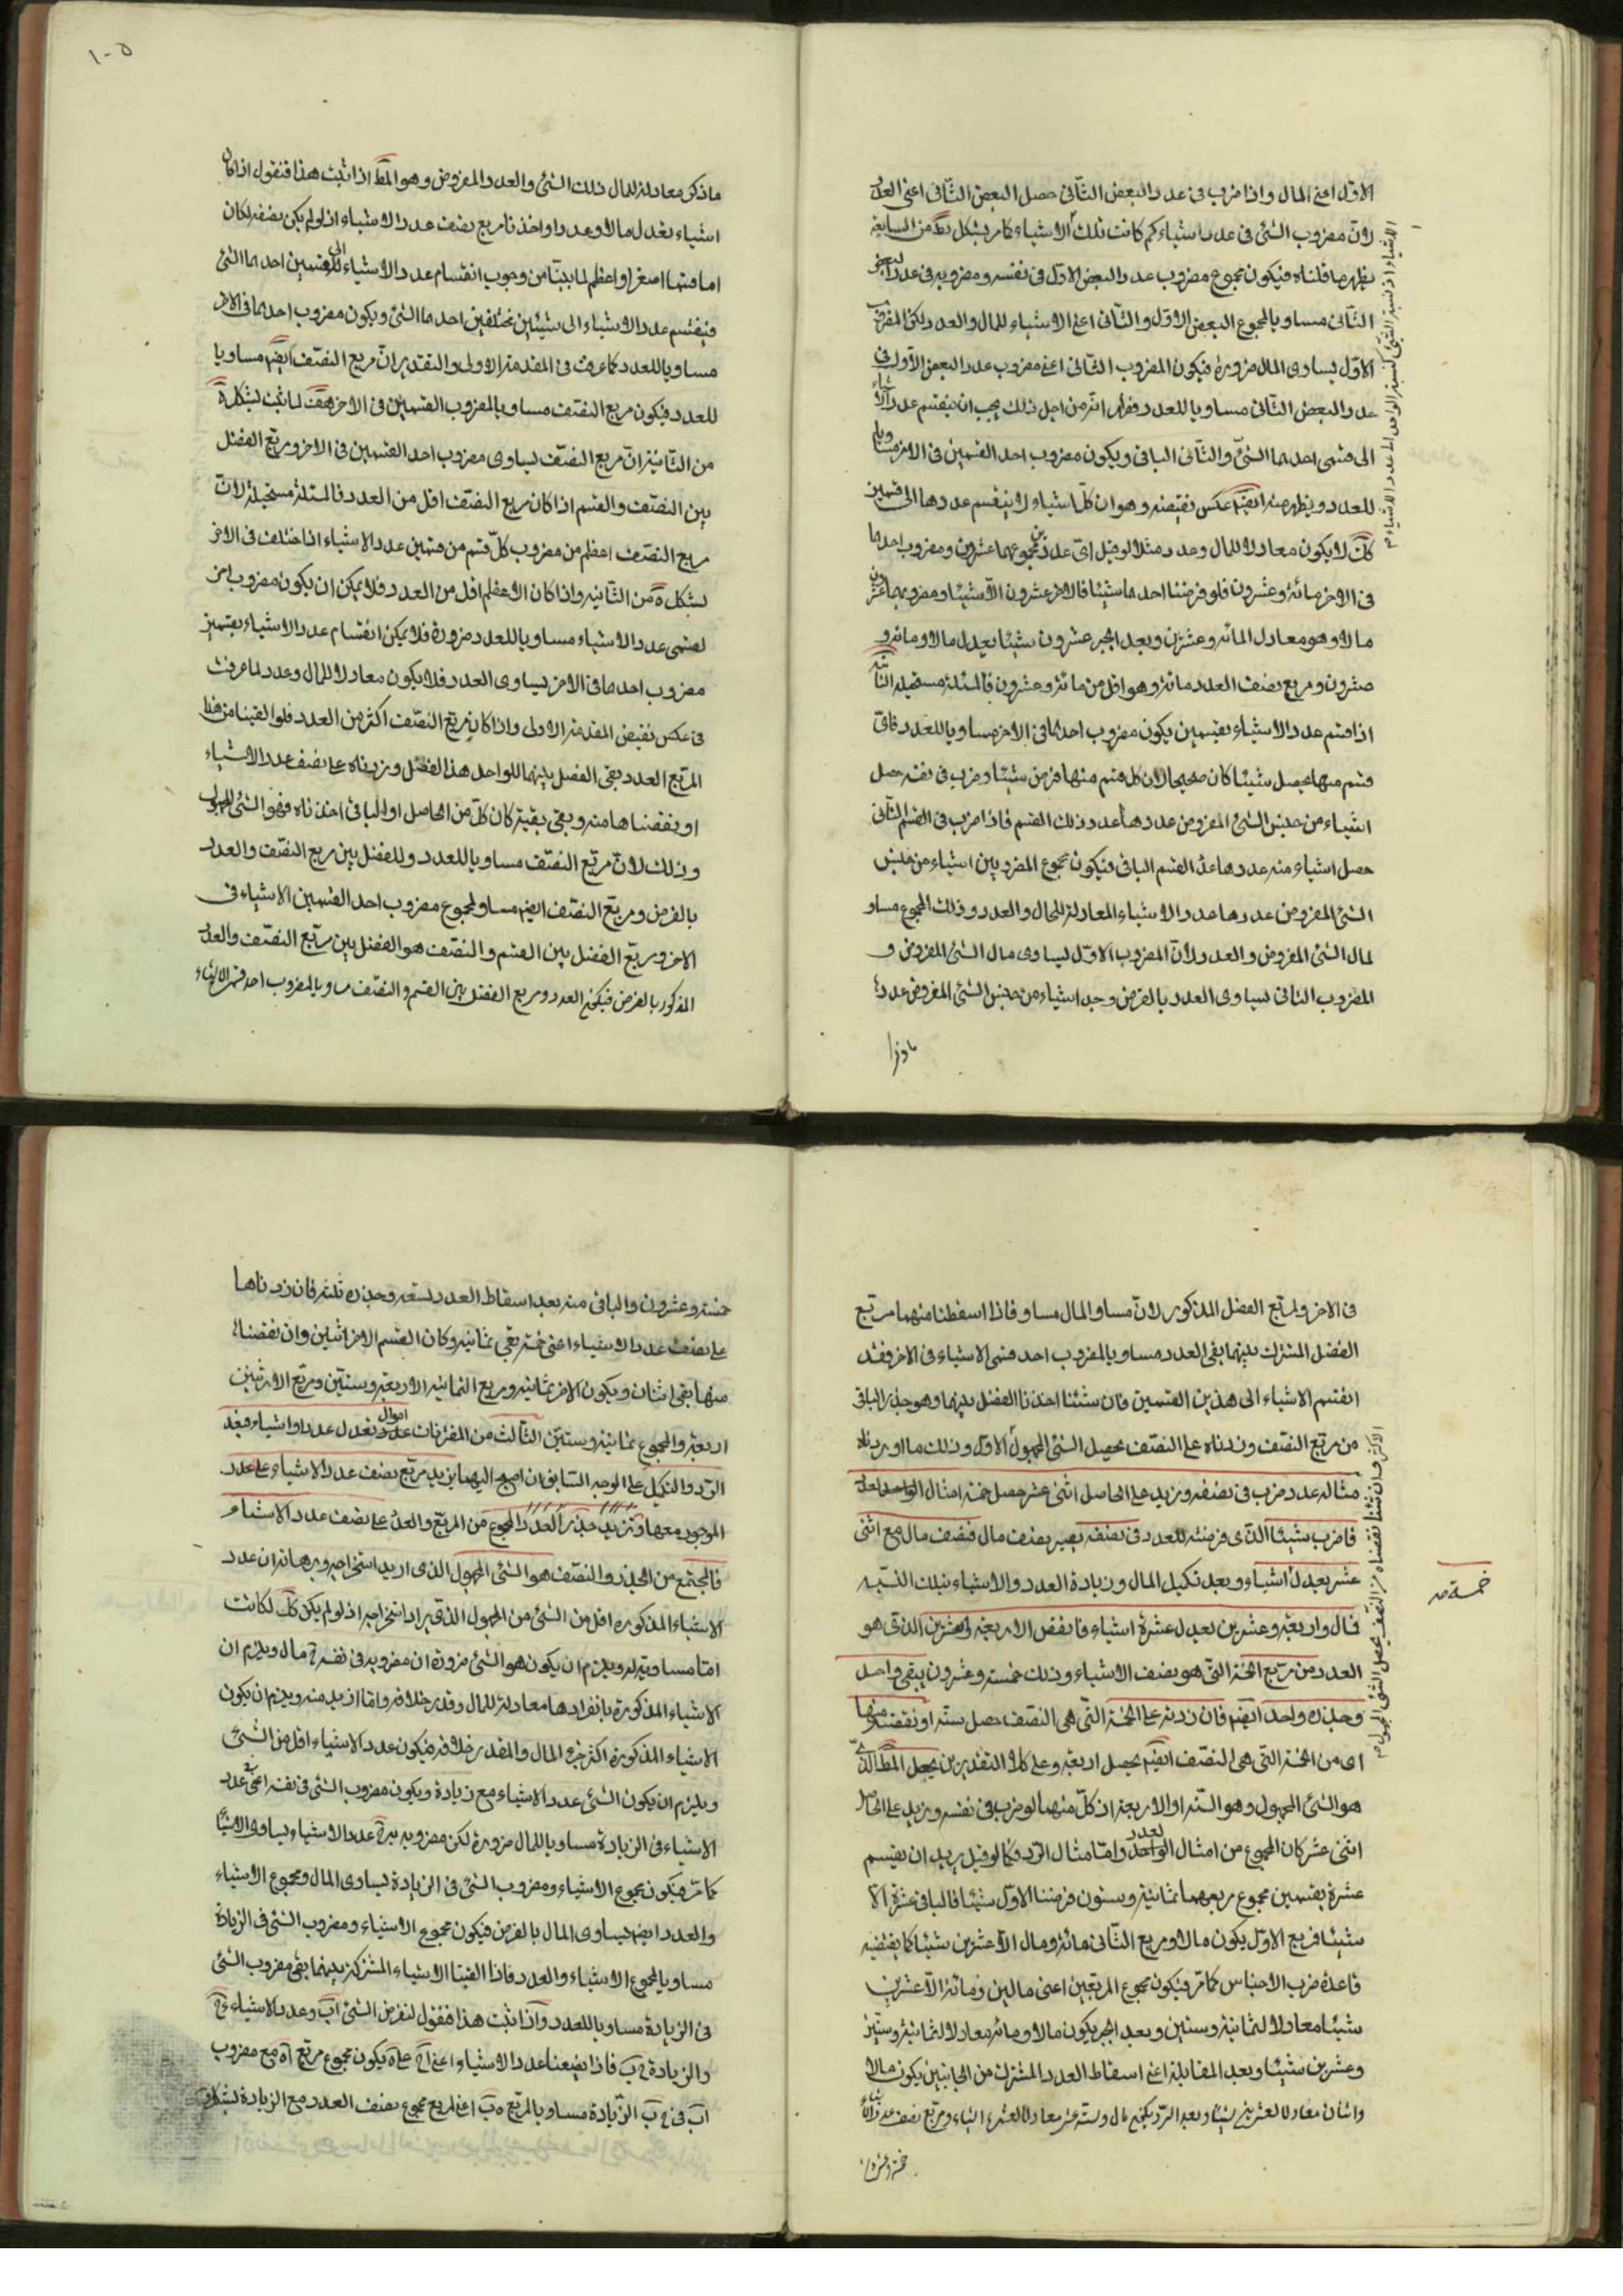 الاوّل اعنى المال واذا ضرب فى عدد البعض الثانى حصل البعض الثانى اعنى العدد
لانّ مضروب الشئ فى عدد اشياء كم كانت تلك الاشياء كما مرّ بشكل من السابعة
يظهر ما قلناه فيكون مجموع مضروب عدد البعض الاوّل فى نفسه ومضروبه فى عدد البعض
الثانى مساويا لمجموع البعض الاوّل والثانى اعنى الاشياء للمال والعدد لكن المضروب
الاوّل يساوى المال ضرورة فيكون المضروب الثانى اعنى مضروب عدد البعض الاوّل فى
عدد البعض الثانى مساويا للعدد فظهر انّه من اجل ذلك يجب ان ينقسم عدد الاشياء
الى قسمى احدهما الشئ والثانى الباقى ويكون مضروب احد القسمين فى الاخر مساويا
للعدد ويظهر منه ايضا عكس نقيضه وهو ان كلّ اشياء لا ينقسم عددها الى قسمين
كك لا يكون معادلا للمال وعدد مثلا لو قيل اىّ عددين مجموعهما عشرين ومضروب احدهما
فى الاخر مائة وعشرون فلو فرضنا احدهما شيئا فالاخر عشرون الّا شيئا ومضروبهما عشرون
مالا وهو معادل المائة وعشرين وبعد الجبر عشرون شيئا يعدل مالا ومائة و
عشرون ومربع نصف العدد مائة وهو اقل من مائة وعشرون فالمسئلة مستحيلة الثانية
اذا قسم عدد الاشياء بقسمين يكون مضروب احدهما فى الاخر مساويا للعدد فاىّ
قسم منها يحصل شيئا كان صحيحا لان كل قسم منها فرض شيئا وضرب فى نفسه حصل
اشياء من جنس الشئ المفروض عددها عدد ذلك القسم فاذا ضرب فى القسم الثانى
حصل اشياء منه عددها عدد القسم الباقى فيكون مجموع المضروبين اشياء من جنس
الشئ المفروض عددها عدد الاشياء المعادلة للمال والعدد وذلك المجموع مساو
لمال الشئ المفروض والعدد لانّ المضروب الاوّل يساوى مال الشئ المفروض و
المضروب الثانى يساوى العدد بالفرض وجد اشياء من جنس الشئ المفروض عددها
ما ذكر معادلة للمال ذلك الشئ والعدد المفروض وهو المط اذا ثبت هذا فنقول اذا كان
اشياء تعدل مالا وعددا واخذنا مربع نصف عدد الاشياء اذ لو لم يكن نصفه لكان
اما قسمها اصغر او اعظم لما بيّنا من وجوب انقسام عدد الاشياء الى القسمين احدهما الشئ
فينقسم عدد الاشياء الى شيئين مختلفين احدهما الشئ ويكون مضروب احدهما فى الاخر
مساويا للعدد كما عرفت فى المقدمة الاولى والتقدير انّ مربع النصف ايضا مساويا
للعدد فيكون مربع النصف مساويا لمضروب القسمين فى الاخر هف لما ثبت بشكل ة
من الثانية انّ مربع النصف يساوى مضروب احد القسمين فى الاخر ومربع الفضل
بين النصف والقسم اذا كان مربع النصف اقل من العدد فالمسئلة مستحيلة لانّ
مربع النصف اعظم من مضروب كلّ قسم من قسمين عدد الاشياء اذا اختلف فى الاخر
بشكل ة من الثانية واذا كان الاعظم اقل من العدد فلا يمكن ان يكون مضروب اخر
لقسمى عدد الاشياء مساويا للعدد ضرورة فلا يمكن انقسام عدد الاشياء بقسمين
مضروب احدهما فى الاخر يساوى العدد فلا يكون معادلا للمال وعدد لما عرفت
فى عكس نقيض المقدمة الاولى واذا كان مربع النصف اكثر من العدد فلو القينا من هذا
المربع العدد بقى الفضل بينهما للواحد هذا الفضل وزدناه على نصف عدد الاشياء
او نقصناها منه وبقى بقية كان كلّ من الحاصل او الباقى اخذناه فهو الشئ المجهول
وذلك لانّ مربع النصف مساويا للعدد وللفضل بين مربع النصف والعدد
بالفرض ومربع النصف ايضا مساو لمجموع مضروب احد القسمين الاشياء فى
الاخر ومربع الفضل بين القسم والنصف هو الفضل بين مربع النصف والعدد
المذكور بالفرض فيكون العدد ومربع الفضل بين القسم والنصف مساويا لمضروب احد قسمى الاشياء
فى الاخر ولمربع الفضل المذكور لانّ مساو المال مساو فاذا اسقطنا منهما مربع
الفضل المشترك بينهما بقى العدد مساويا لمضروب احد قسمى الاشياء فى الاخر فقد
انقسم الاشياء الى هذين القسمين فان شئنا اخذنا الفضل بينهما وهو جذر الباقى
من مربع النصف وزدناه على النصف يحصل الشئ المجهول الاوّل وذلك ما اوردناه
مثاله عدد ضرب فى نصفه وزيد على الحاصل اثنى عشر حصل خمسة امثال الواحد لعدد
فاضرب شيئا الذى فرضته للعدد فى نصفه يصير نصف مال فنصف مال مع اثنى
عشر يعدل اشياء وبعد تكميل المال وزيادة العدد والاشياء بتلك النسبة
فمال واربعة وعشرين يعدل عشرة اشياء فانقص الاربعة والعشرين الذى هو
العدد من مربع الخمسة التى هو نصف الاشياء وذلك خمسة وعشرون يبقى واحد
وجذره واحد ايضا فان زدته على الخمسة التى هى النصف حصل ستة او نقصته منها
اى من الخمسة التى هى النصف ايضا يحصل اربعة وعلى كلا التقديرين يحصل المط الذى
هو الشئ المجهول وهو الستة او الاربعة اذ كلّ منهما لو ضرب فى نفسه وزيد على الحاصل
اثنى عشر كان المجموع من امثال الواحد لعدد وامّا مثال الرد فكما لو قيل يريد ان يقسم
عشرة بقسمين مجموع مربعهما ثمانية وستون فرضنا الاوّل شيئا فالباقى عشرة الّا
شيئا فمربع الاوّل يكون مالا ومربع الثانى مائة ومال الّا عشرين شيئا كما يقتضيه
قاعدة ضرب الاجناس كما مرّ فيكون مجموع المربعين اعنى مالين ومائة الّا عشرين
شيئا معادلا لثمانية وستين وبعد الجبر يكون مالا ومائة معادلا لثمانية وستين
وعشرين شيئا وبعد المقابلة اعنى اسقاط العدد المشترك من الجانبين يكون مالا
خمسة وعشرون والباقى منه بعد اسقاط العدد تسعة وجذره ثلثة فان زدناها
على نصف عدد الاشياء اعنى خمسة بقى ثمانية وكان القسم الاخر اثنين وان نقصناه
منها بقى اثنان ويكون الاخر ثمانية ومربع الثمانية الاربعة وستين ومربع الاثنين
اربعة والمجموع ثمانية وستين الثالث من المقترنات اموال تعدل عددا واشياء فبعد
الرد والتكميل على الوجه السابق ان احتج اليهما يزيد مربع نصف عدد الاشياء على عدد
الموجود معها وتزيد جذر المجموع من المربع والعدد على نصف عدد الاشياء
فالمجتمع من الجذر والنصف هو الشئ المجهول الذى اريد استخراجه وبرهانه ان عدد
الاشياء المذكورة اقل من الشئ من المجهول الذى يراد استخراجه اذ لو لم يكن كك لكانت
امّا مساوية له ويلزم ان يكون هو الشئ ضرورة ان مضروبه فى نفسه مال ويلزم ان
الاشياء المذكورة بانفرادها معادلة للمال وقدر خلافه وامّا ازيد منه ويلزم ان يكون
الاشياء المذكورة اكثر من المال والمقدر خلافه فيكون عدد الاشياء اقل من الشئ
ويلزم ان يكون الشئ عدد الاشياء مع زيادة ويكون مضروب الشئ فى نفسه اعنى فى عدد
الاشياء فى الزيادة مساويا للمال ضرورة لكن مضروبه فى عدد الاشياء يساوى الاشياء
كما مرّ فيكون مجموع الاشياء ومضروب الشئ فى الزيادة يساوى المال ومجموع الاشياء
والعدد ايضا يساوى المال بالفرض فيكون مجموع الاشياء ومضروب الشئ فى الزيادة
مساويا لمجموع الاشياء والعدد فاذا القينا الاشياء المشتركة بينهما بقى مضروب الشئ
فى الزيادة مساويا للعدد واذا ثبت هذا فنقول لنفرض الشئ اب وعدد الاشياء